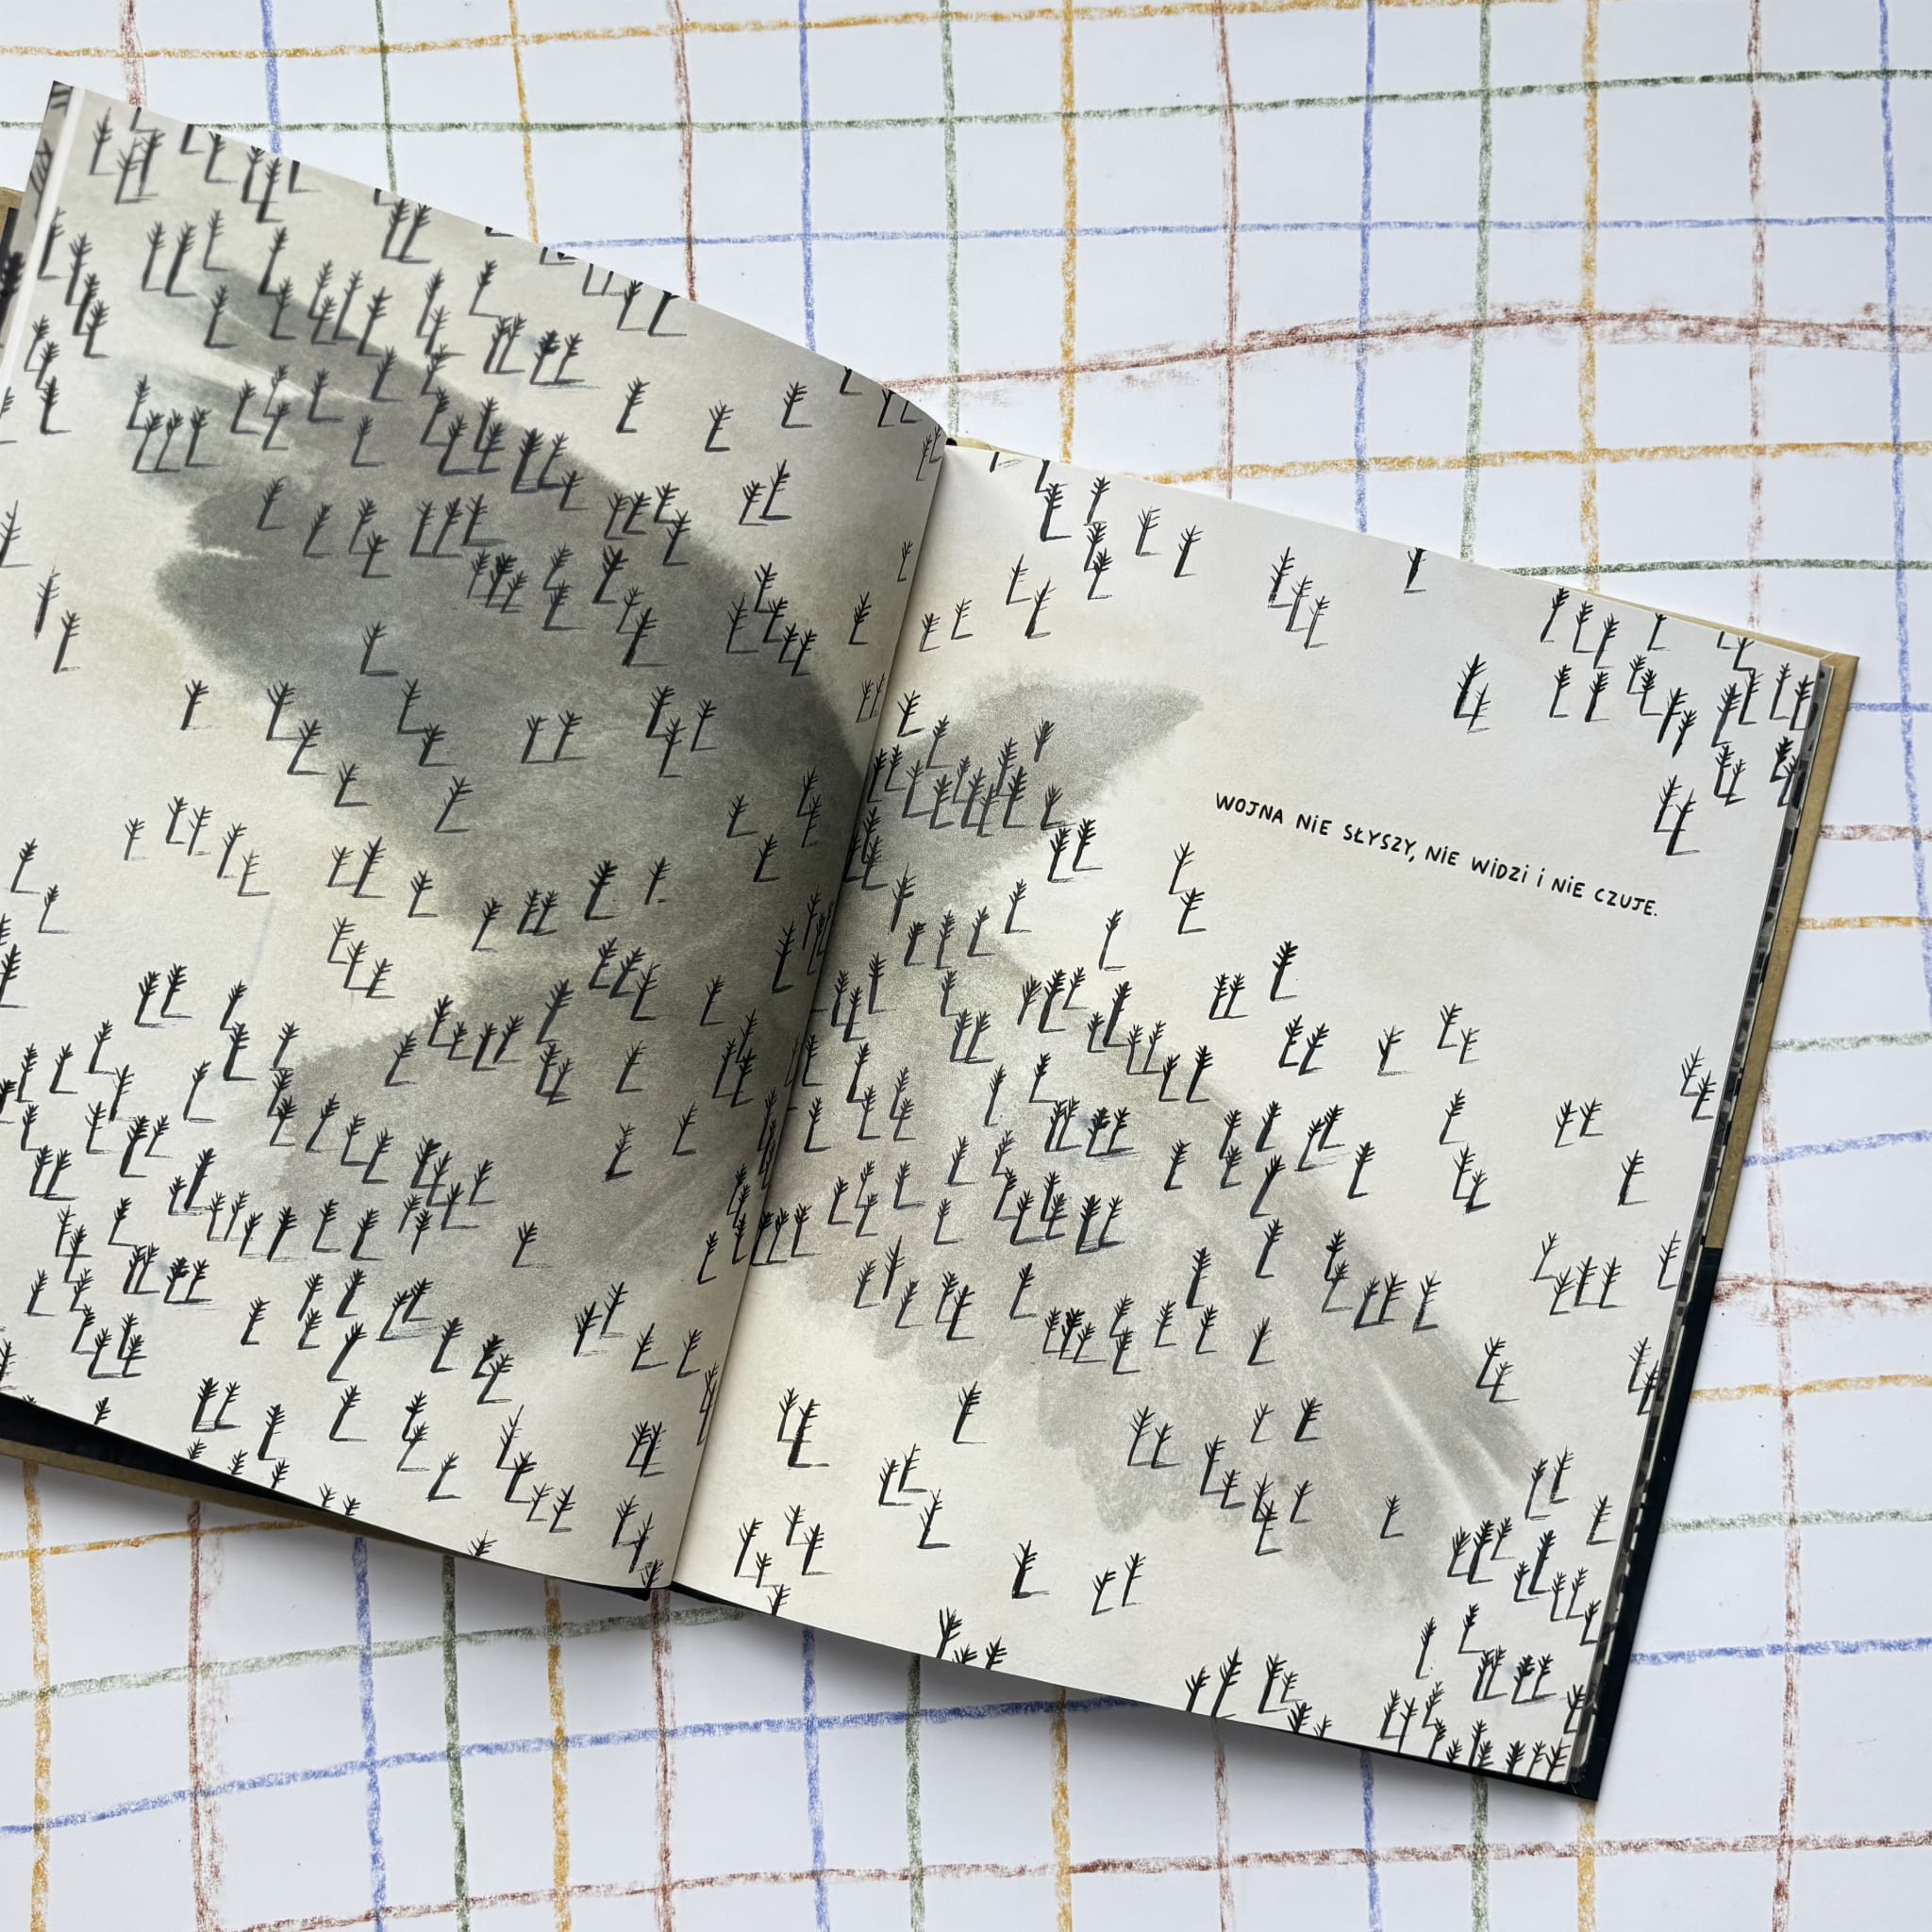 WOJNA NiE SŁYSZY, NiE WiDZi i NiE CZUJE.